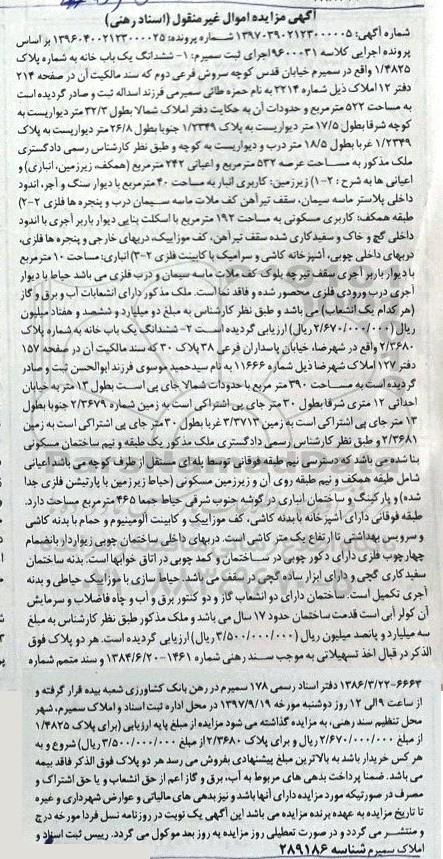 آگهی مزایده اموال غیر منقول (اسناد رهنی)
شماره آگهی: ۱۳۹۷۰۳۹۰۲۱۲۳۰۰۰۰۰۵ شماره پرونده: ۱۳۹۶۰۴۰۰۲۱۲۳۰۰۰۰۲۵ بر اساس
پرونده اجرایی کلاسه ۹۶۰۰۰۳۱ اجرای ثبت سمیرم: ۱- ششدانگ یک باب خانه به شماره پلاک
۱/۴۸۲۵ واقع در سمیرم خیابان قدس کوچه سروش فرعی دوم که سند مالکیت آن در صفحه ۲۱۴
دفتر ۱۲ املاک ذیل شماره ۲۲۱۴ به نام حمزه طائی سمیرمی فرزند اسداله ثبت و صادر گردیده است
به مساحت ۵۲۲ مترمربع و حدودات آن به حکایت دفتر املاک شمالا بطول ۳۲/۳ متر دیواریست به
کوچه شرقا بطول ۱۷/۵ متر دیواریست به پلاک ۱/۲۳۴۹ جنوبا بطول ۲۶/۸ متر دیواریست به پلاک
۱/۲۳۴۹ غربا بطول ۱۸/۵ متر درب و دیواریست به کوچه و طبق نظر کارشناس رسمی دادگستری
ملک مذکور به مساحت عرصه ۵۳۲ مترمربع و اعیانی ۲۴۲ مترمربع (همکف، زیرزمین، انباری) و
اعیانی ها به شرح : ۲-۱) زیرزمین: کاربری انبار به مساحت ۴۰ مترمربع با دیوار سنگ و آجر، اندود
داخلی پلاستر ماسه سیمان، سقف تیرآهن کف ملات ماسه سیمان درب و پنجره ها فلزی ۲-۲)
طبقه همکف: کاربری مسکونی به مساحت ۱۹۲ مترمربع با اسکلت بنایی دیوار باربر آجری با اندود
داخلی گچ و خاک و سفیدکاری شده سقف تیرآهن، کف موزاییک، دربهای خارجی و پنجره ها فلزی،
دربهای داخلی چوبی، آشپزخانه کاشی و سرامیک با کابینت فلزی ۲-۳) انباری: مساحت ۱۰ مترمربع
با دیوار باربر آجری سقف تیرچه بلوک کف ملات ماسه سیمان و درب فلزی می باشد حیاط با دیوار
آجری درب ورودی فلزی محصور شده و فاقد نما است. ملک مذکور دارای انشعابات آب و برق و گاز
(هر کدام یک انشعاب) می باشد و طبق نظر کارشناس به مبلغ دو میلیارد و ششصد و هفتاد میلیون
ریال (۲/۶۷۰/۰۰۰/۰۰۰ ریال) ارزیابی گردیده است ۲- ششدانگ یک باب خانه به شماره پلاک
۲/۳۶۸۰ واقع در شهرضا، خیابان پاسداران فرعی ۳۸ پلاک ۳۰ که سند مالکیت آن در صفحه ۱۵۷
دفتر ۱۲۷ املاک شهرضا ذیل شماره ۱۱۶۶۶ به نام سیدحمید موسوی فرزند ابوالحسن ثبت و صادر
گردیده است به مساحت ۳۹۰ متر مربع با حدودات شمالا جای پی است بطول ۱۳ متر به خیابان
احداثی ۱۲ متری شرقا بطول ۳۰ متر جای پی اشتراکی است به زمین شماره ۲/۳۶۷۹ جنوبا بطول
۱۳ متر جای پی اشتراکی است به زمین ۲/۳۷۱۳ غربا بطول ۳۰ متر جای پی اشتراکی است به زمین
۲/۳۶۸۱ و طبق نظر کارشناس رسمی دادگستری ملک مذکور یک طبقه و نیم ساختمان مسکونی
بنا شده می باشد که دسترسی نیم طبقه فوقانی توسط پله ای مستقل از طرف کوچه می باشد اعیانی
شامل طبقه همکف و نیم طبقه روی آن و زیرزمین مسکونی (حیاط زیرزمین با پارتیشن فلزی جدا
شده) و پارکینگ و ساختمان انباری در گوشه جنوب شرقی حیاط جمعا ۴۶۵ مترمربع مساحت دارد.
طبقه فوقانی دارای آشپزخانه با بدنه کاشی، کف موزاییک و کابینت آلومینیوم و حمام با بدنه کاشی
و سرویس بهداشتی تا ارتفاع یک متر کاشی است. دربهای داخلی ساختمان چوبی زیواردار بانضمام
چهارچوب فلزی دارای دکور چوبی در ساختمان و کمد چوبی در اتاق خوابها است. بدنه ساختمان
سفیدکاری گچی و دارای ابزار ساده گچی در سقف می باشد. حیاط سازی با موزاییک حیاطی و بدنه
آجری تکمیل است. ساختمان دارای دو انشعاب گاز و دو کنتور برق و آب و چاه فاضلاب و سرمایش
آن کولر آبی است قدمت ساختمان حدود ۱۷ سال می باشد و ملک مذکور طبق نظر کارشناس به مبلغ
سه میلیارد و پانصد میلیون ریال (۳/۵۰۰/۰۰۰/۰۰۰ ریال) ارزیابی گردیده است. هر دو پلاک فوق
الذکر در قبال اخذ تسهیلاتی به موجب سند رهنی شماره ۱۴۶۱-۱۳۸۴/۶/۲۰ و سند متمم شماره
۶۶۶۳-۱۳۸۶/۳/۲۲ دفتر اسناد رسمی ۱۷۸ سمیرم در رهن بانک کشاورزی شعبه بیده قرار گرفته و
از ساعت ۹ الی ۱۲ روز دوشنبه مورخه ۱۳۹۷/۹/۱۹ در محل اداره ثبت اسناد و املاک سمیرم، شهر
محل تنظیم سند رهنی، به مزایده گذاشته می شود مزایده از مبلغ پایه ارزیابی (برای پلاک ۱/۴۸۲۵
از مبلغ ۲/۶۷۰/۰۰۰/۰۰۰ ریال و برای پلاک ۲/۳۶۸۰ از مبلغ ۳/۵۰۰/۰۰۰/۰۰۰ ریال) شروع و به
هر کس خریدار باشد به بالاترین مبلغ پیشنهادی بفروش می رسد هر دو پلاک فوق الذکر فاقد بیمه
می باشد. ضمنا پرداخت بدهی های مربوط به آب، برق و گاز اعم از حق انشعاب و یا حق اشتراک و
مصرف در صورتیکه مورد مزایده دارای آنها باشد و نیز بدهی های مالیاتی و عوارض شهرداری و غیره
تا تاریخ مزایده به عهده برنده مزایده می باشد این آگهی یک نوبت در روزنامه نسل فردا مورخه درج
و منتشر می گردد و در صورت تعطیلی روز مزایده به روز بعد موکول می گردد. رییس ثبت اسناد و
املاک سمیرم شناسه ۲۸۹۱۸۶